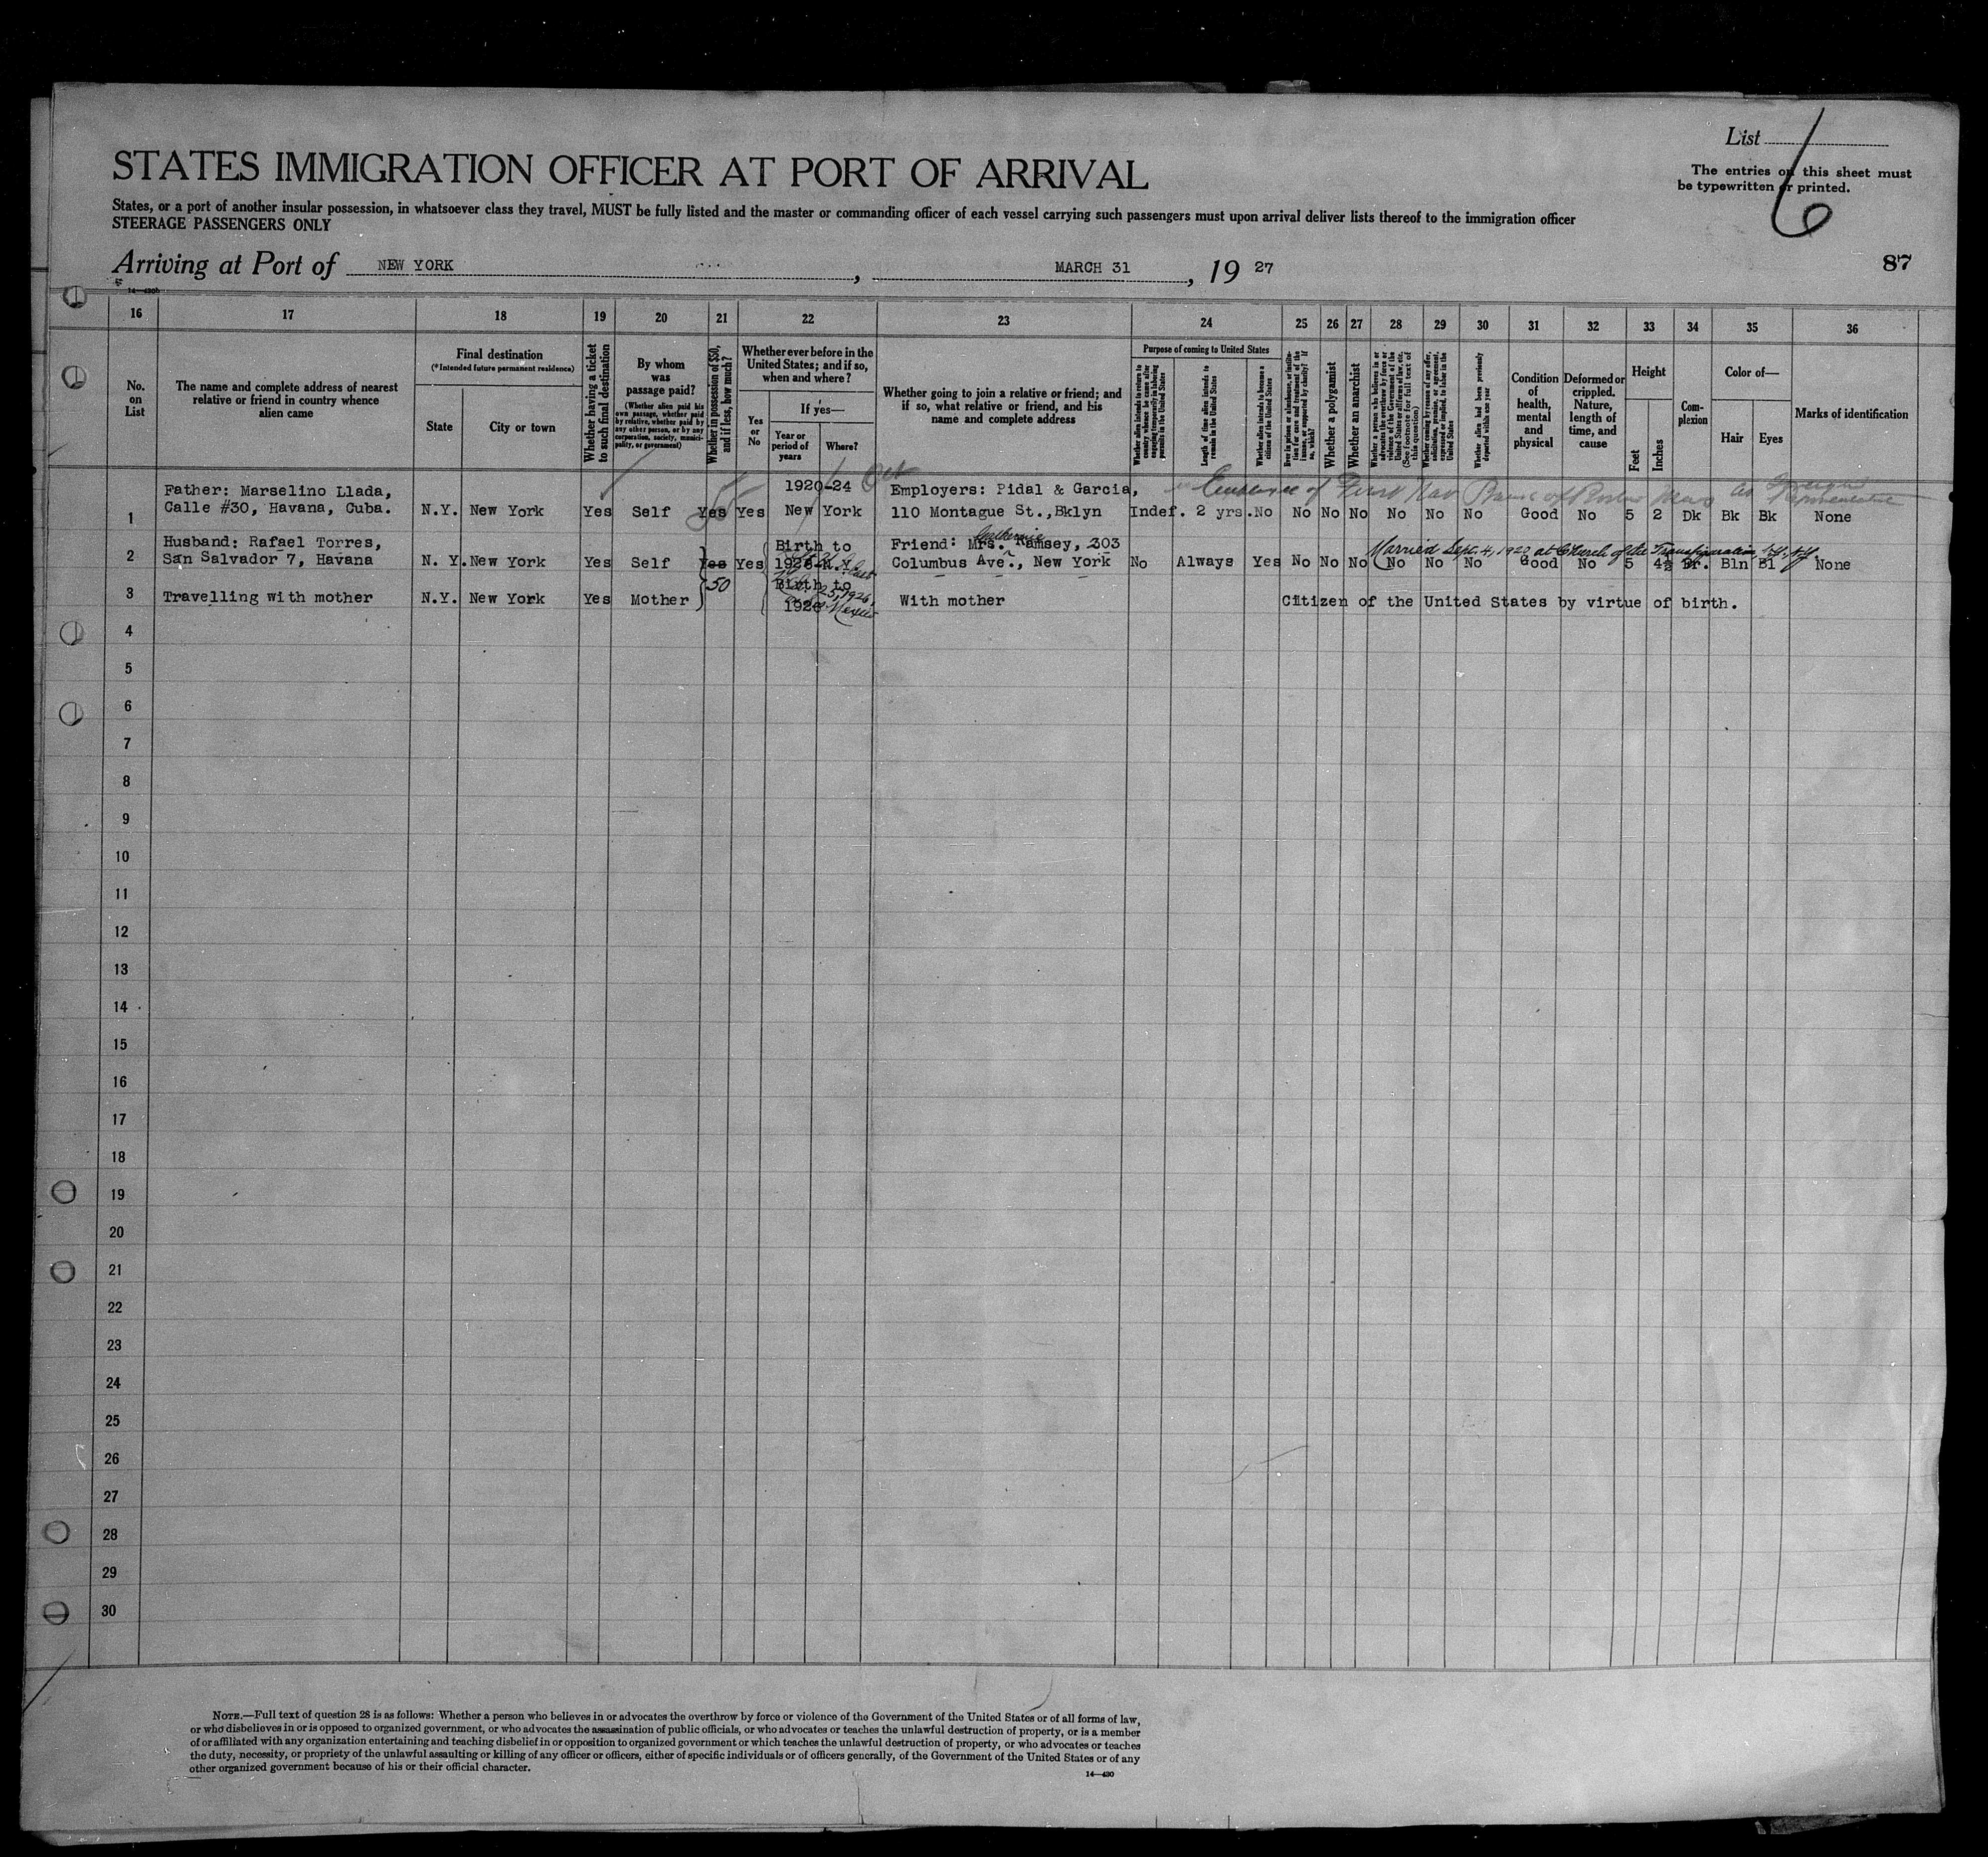 List 6
The entries on this sheet must
be typewritten or printed.
STATES IMMIGRATION OFFICER AT PORT OF ARRIVAL
States, or a port of another insular possession, in whatsoever class they travel, MUST be fully listed and the master or commanding officer of each vessel carrying such passengers must upon arrival deliver lists thereof to the immigration officer
STEERAGE PASSENGERS ONLY
Arriving at Port of NEW YORK, MARCH 31, 19 27
87
14—430b
16 17 18 19 20 21 22 23 24 25 26 27 28 29 30 31 32 33 34 35 36
No. on List
The name and complete address of nearest
relative or friend in country whence
alien came
Final destination
(*Intended future permanent residence)
State
City or town
Whether having a ticket
to such final destination
By whom
was
passage paid?
(Whether alien paid his
own passage, whether paid
by relative, whether paid by
any other person, or by any
corporation, society, munici-
pality, or government)
Whether in possession of $50,
and if less, how much?
Whether ever before in the
United States; and if so,
when and where?
Yes
or
No
If yes—
Year or
period of
years
Where?
Whether going to join a relative or friend; and
if so, what relative or friend, and his
name and complete address
Purpose of coming to United States
Whether alien intends to return to
country whence he came after
engaging temporarily in laboring
pursuits in the United States
Length of time alien intends to
remain in the United States
Whether alien intends to become a
citizen of the United States
Ever in prison or almshouse, or institu-
tion for care and treatment of the
insane, or supported by charity? If
so, which?
Whether a polygamist
Whether an anarchist
Whether a person who believes in or
advocates the overthrow by force or
violence of the Government of the
United States or all forms of law, etc.
(See footnote for full text of
this question)
Whether coming by reason of any offer,
solicitation, promise, or agreement,
expressed or implied, to labor in the
United States
Whether alien had been previously
deported within one year
Condition
of
health,
mental
and
physical
Deformed or
crippled.
Nature,
length of
time, and
cause
Height
Feet
Inches
Com-
plexion
Color of—
Hair
Eyes
Marks of identification
Oct
Employee of First Nat Bank of Boston
1 Father: Marselino Llada,
Calle #30, Havana, Cuba. N.Y. New York Yes Self Yes Yes 1920-24
New York Employers: Pidal & Garcia,
110 Montague St.,Bklyn Indef. 2 yrs. No No No No No No No Good No 5 2 Dk Bk Bk None
Married Sept. 4, 1920 at Church of the Transfiguration, N.Y. N.Y.
2 Husband: Rafael Torres,
San Salvador 7, Havana N. Y. New York Yes Self Yes Yes Birth to
1926 N.Y. Friend: Mrs. Katherine Ramsey, 303
Columbus Ave., New York No Always Yes No No No No No No Good No 5 4½ Br. Bln Bl None
50
3 Travelling with mother N.Y. New York Yes Mother Birth to
1926 With mother Citizen of the United States by virtue of birth.
25, 1926,
Mexico
4
5
6
7
8
9
10
11
12
13
14
15
16
17
18
19
20
21
22
23
24
25
26
27
28
29
30
NOTE.—Full text of question 28 is as follows: Whether a person who believes in or advocates the overthrow by force or violence of the Government of the United States or of all forms of law,
or who disbelieves in or is opposed to organized government, or who advocates the assassination of public officials, or who advocates or teaches the unlawful destruction of property, or is a member
of or affiliated with any organization entertaining and teaching disbelief in or opposition to organized government or which teaches the unlawful destruction of property, or who advocates or teaches
the duty, necessity, or propriety of the unlawful assaulting or killing of any officer or officers, either of specific individuals or of officers generally, of the Government of the United States or of any
other organized government because of his or their official character.
14—430